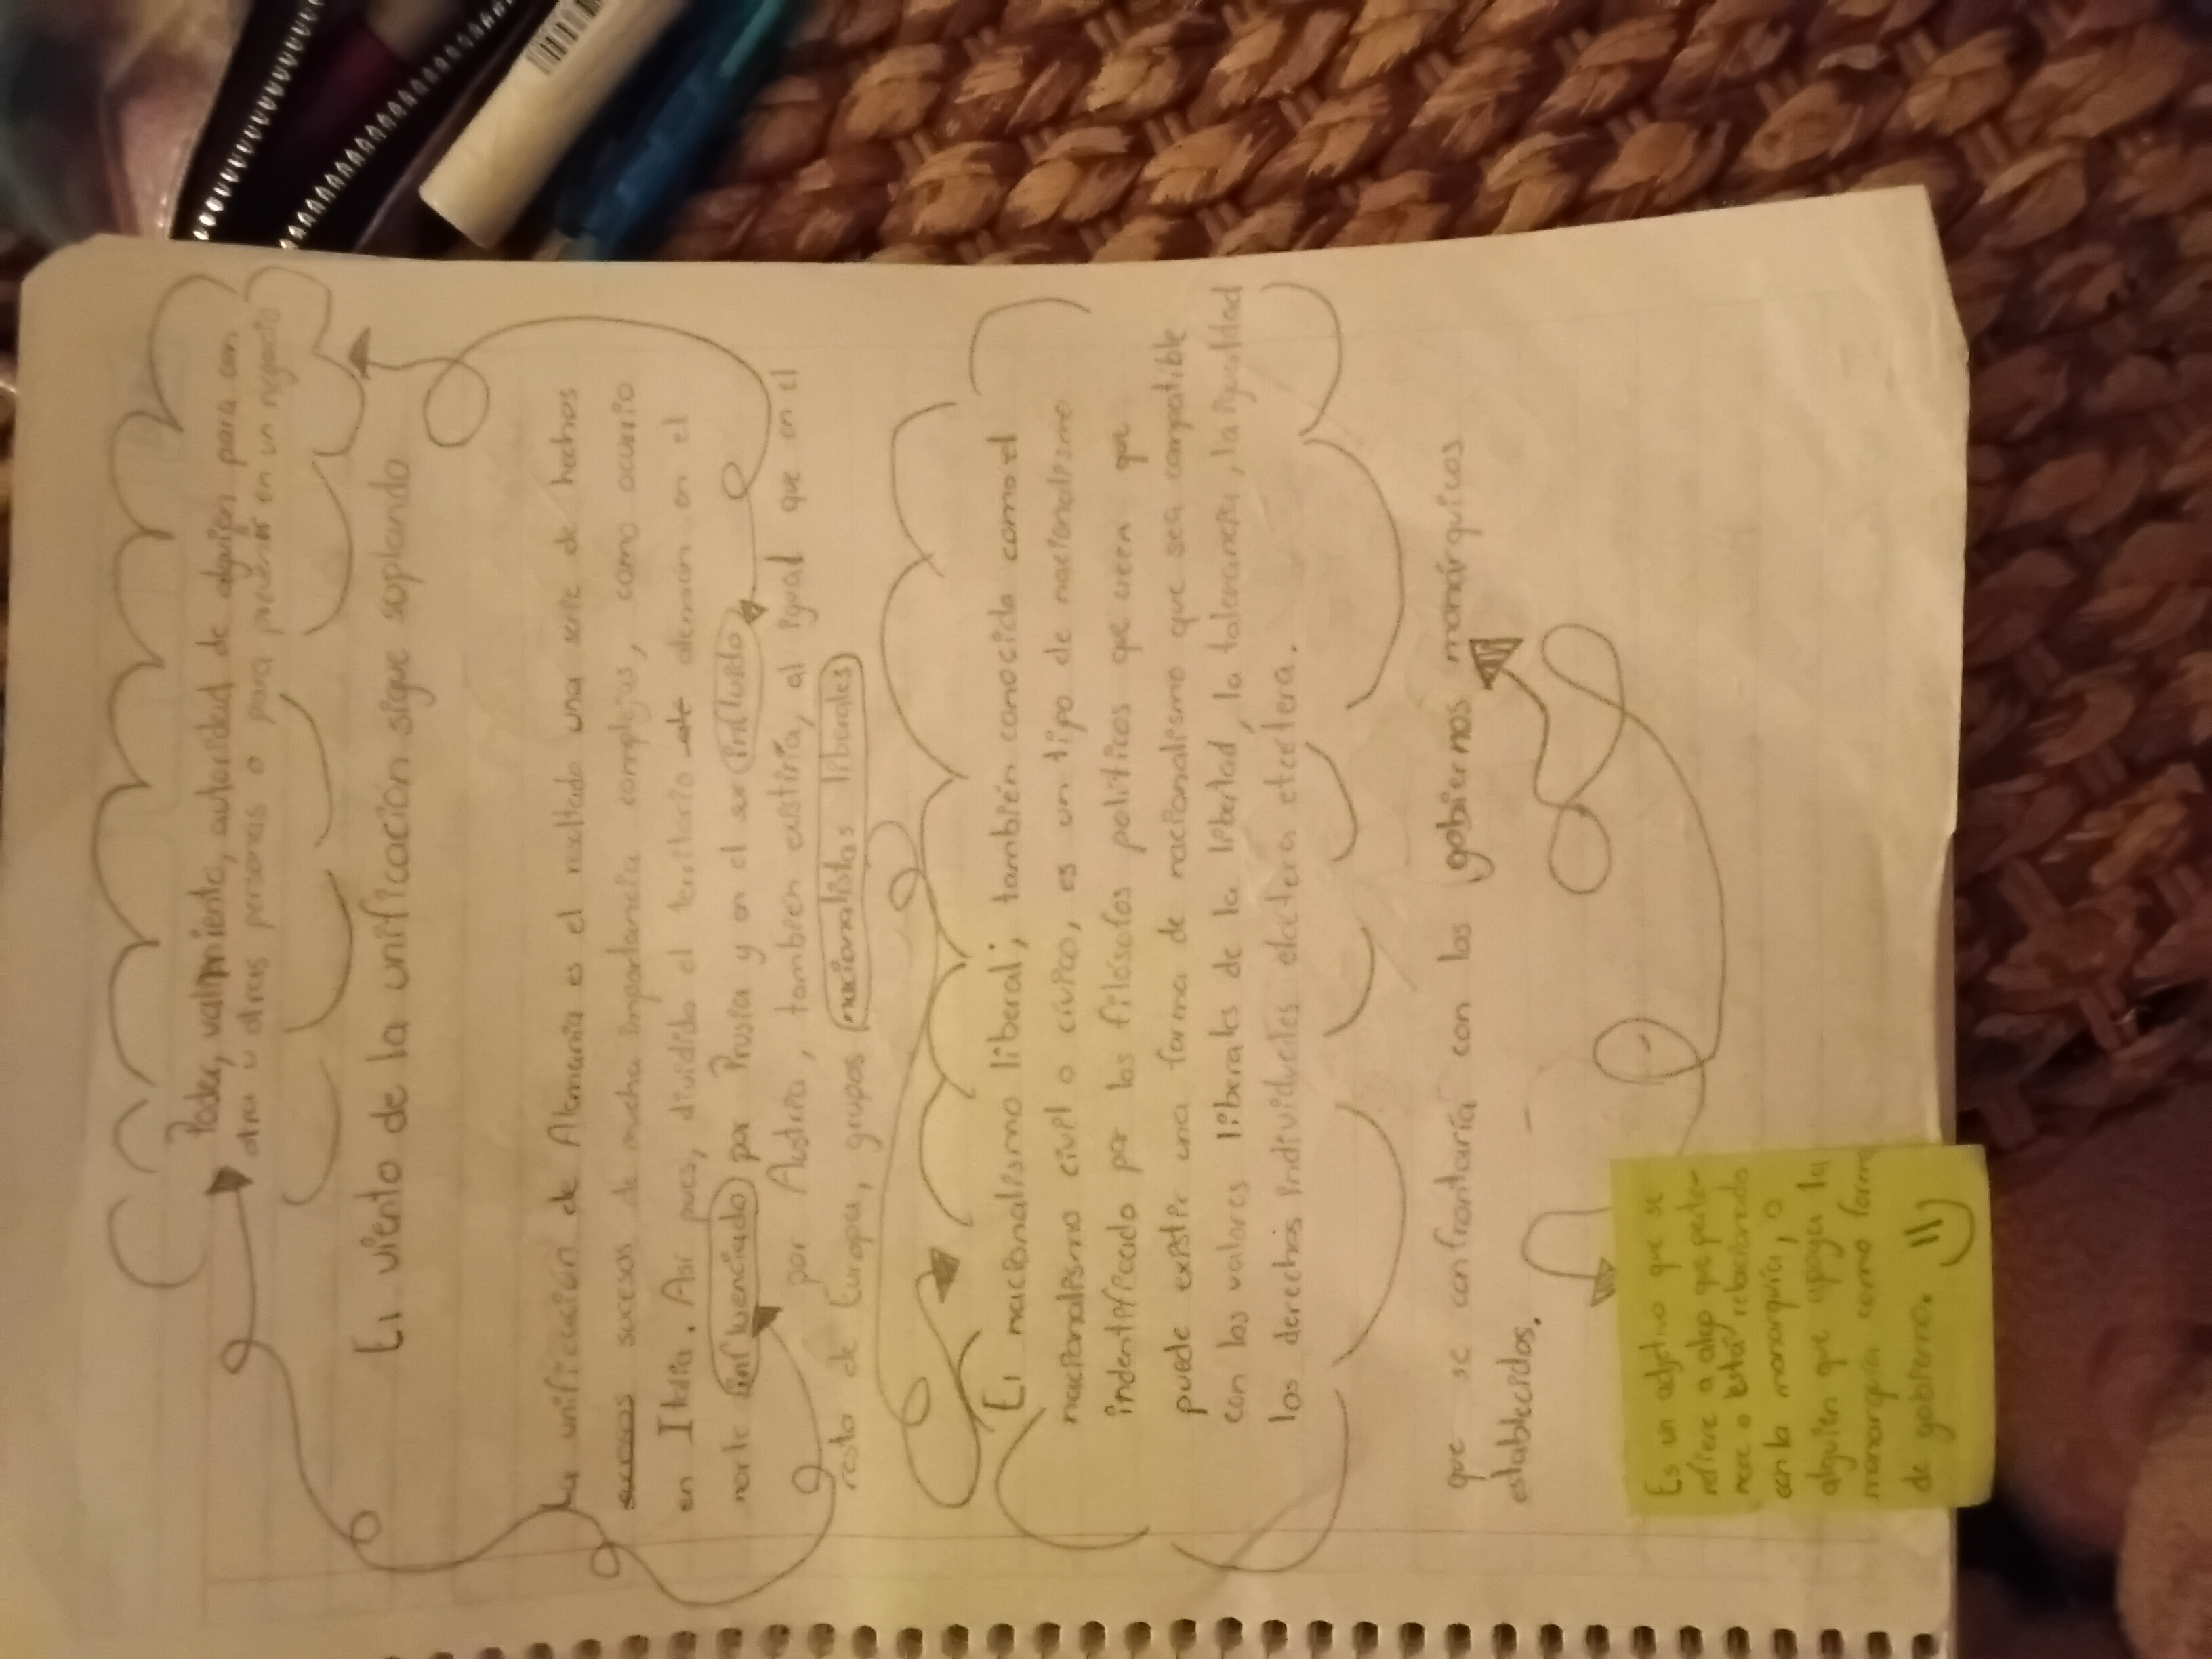 Poder, valimiento, autoridad de alguien para con
otra u otras personas o para prevenir en un negocio
El viento de la unificación sigue soplando
La unificación de Alemania es el resultado una serie de hechos
sucesos sucesos de mucha importancia complejas, como ocurrio
en Italia. Así pues, dividido el territorio de aleman en el
norte influenciado por Prusia y en el sur influido
por Austria, tambien existiría, al igual que en el
resto de Europa, grupos nacionalistas liberales
El nacionalismo liberal; también conocido como el
nacionalismo civil o cívico, es un tipo de nacionalismo
indentificado por los filósofos políticos que creen que
puede existir una forma de nacionalismo que sea compatible
con los valores liberales de la libertad, la tolerancia, la igualdad
los derechos individuales etcétera etcétera.
que se confrontaría con los gobiernos monárquicos
establecidos.
Es un adjetivo que se
refiere a algo que perte-
nece o está relacionado
con la monarquía, o
alguien que apoya la
monarquía como forma
de gobierno.